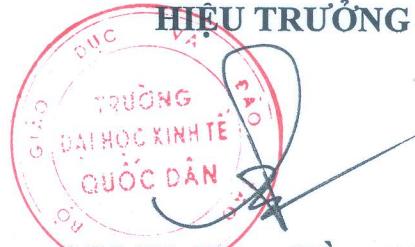 HIỆU TRƯỞNG
BỘ GIÁO DỤC VÀ ĐÀO
TRƯỜNG
ĐẠI HỌC KINH TẾ
QUỐC DÂN